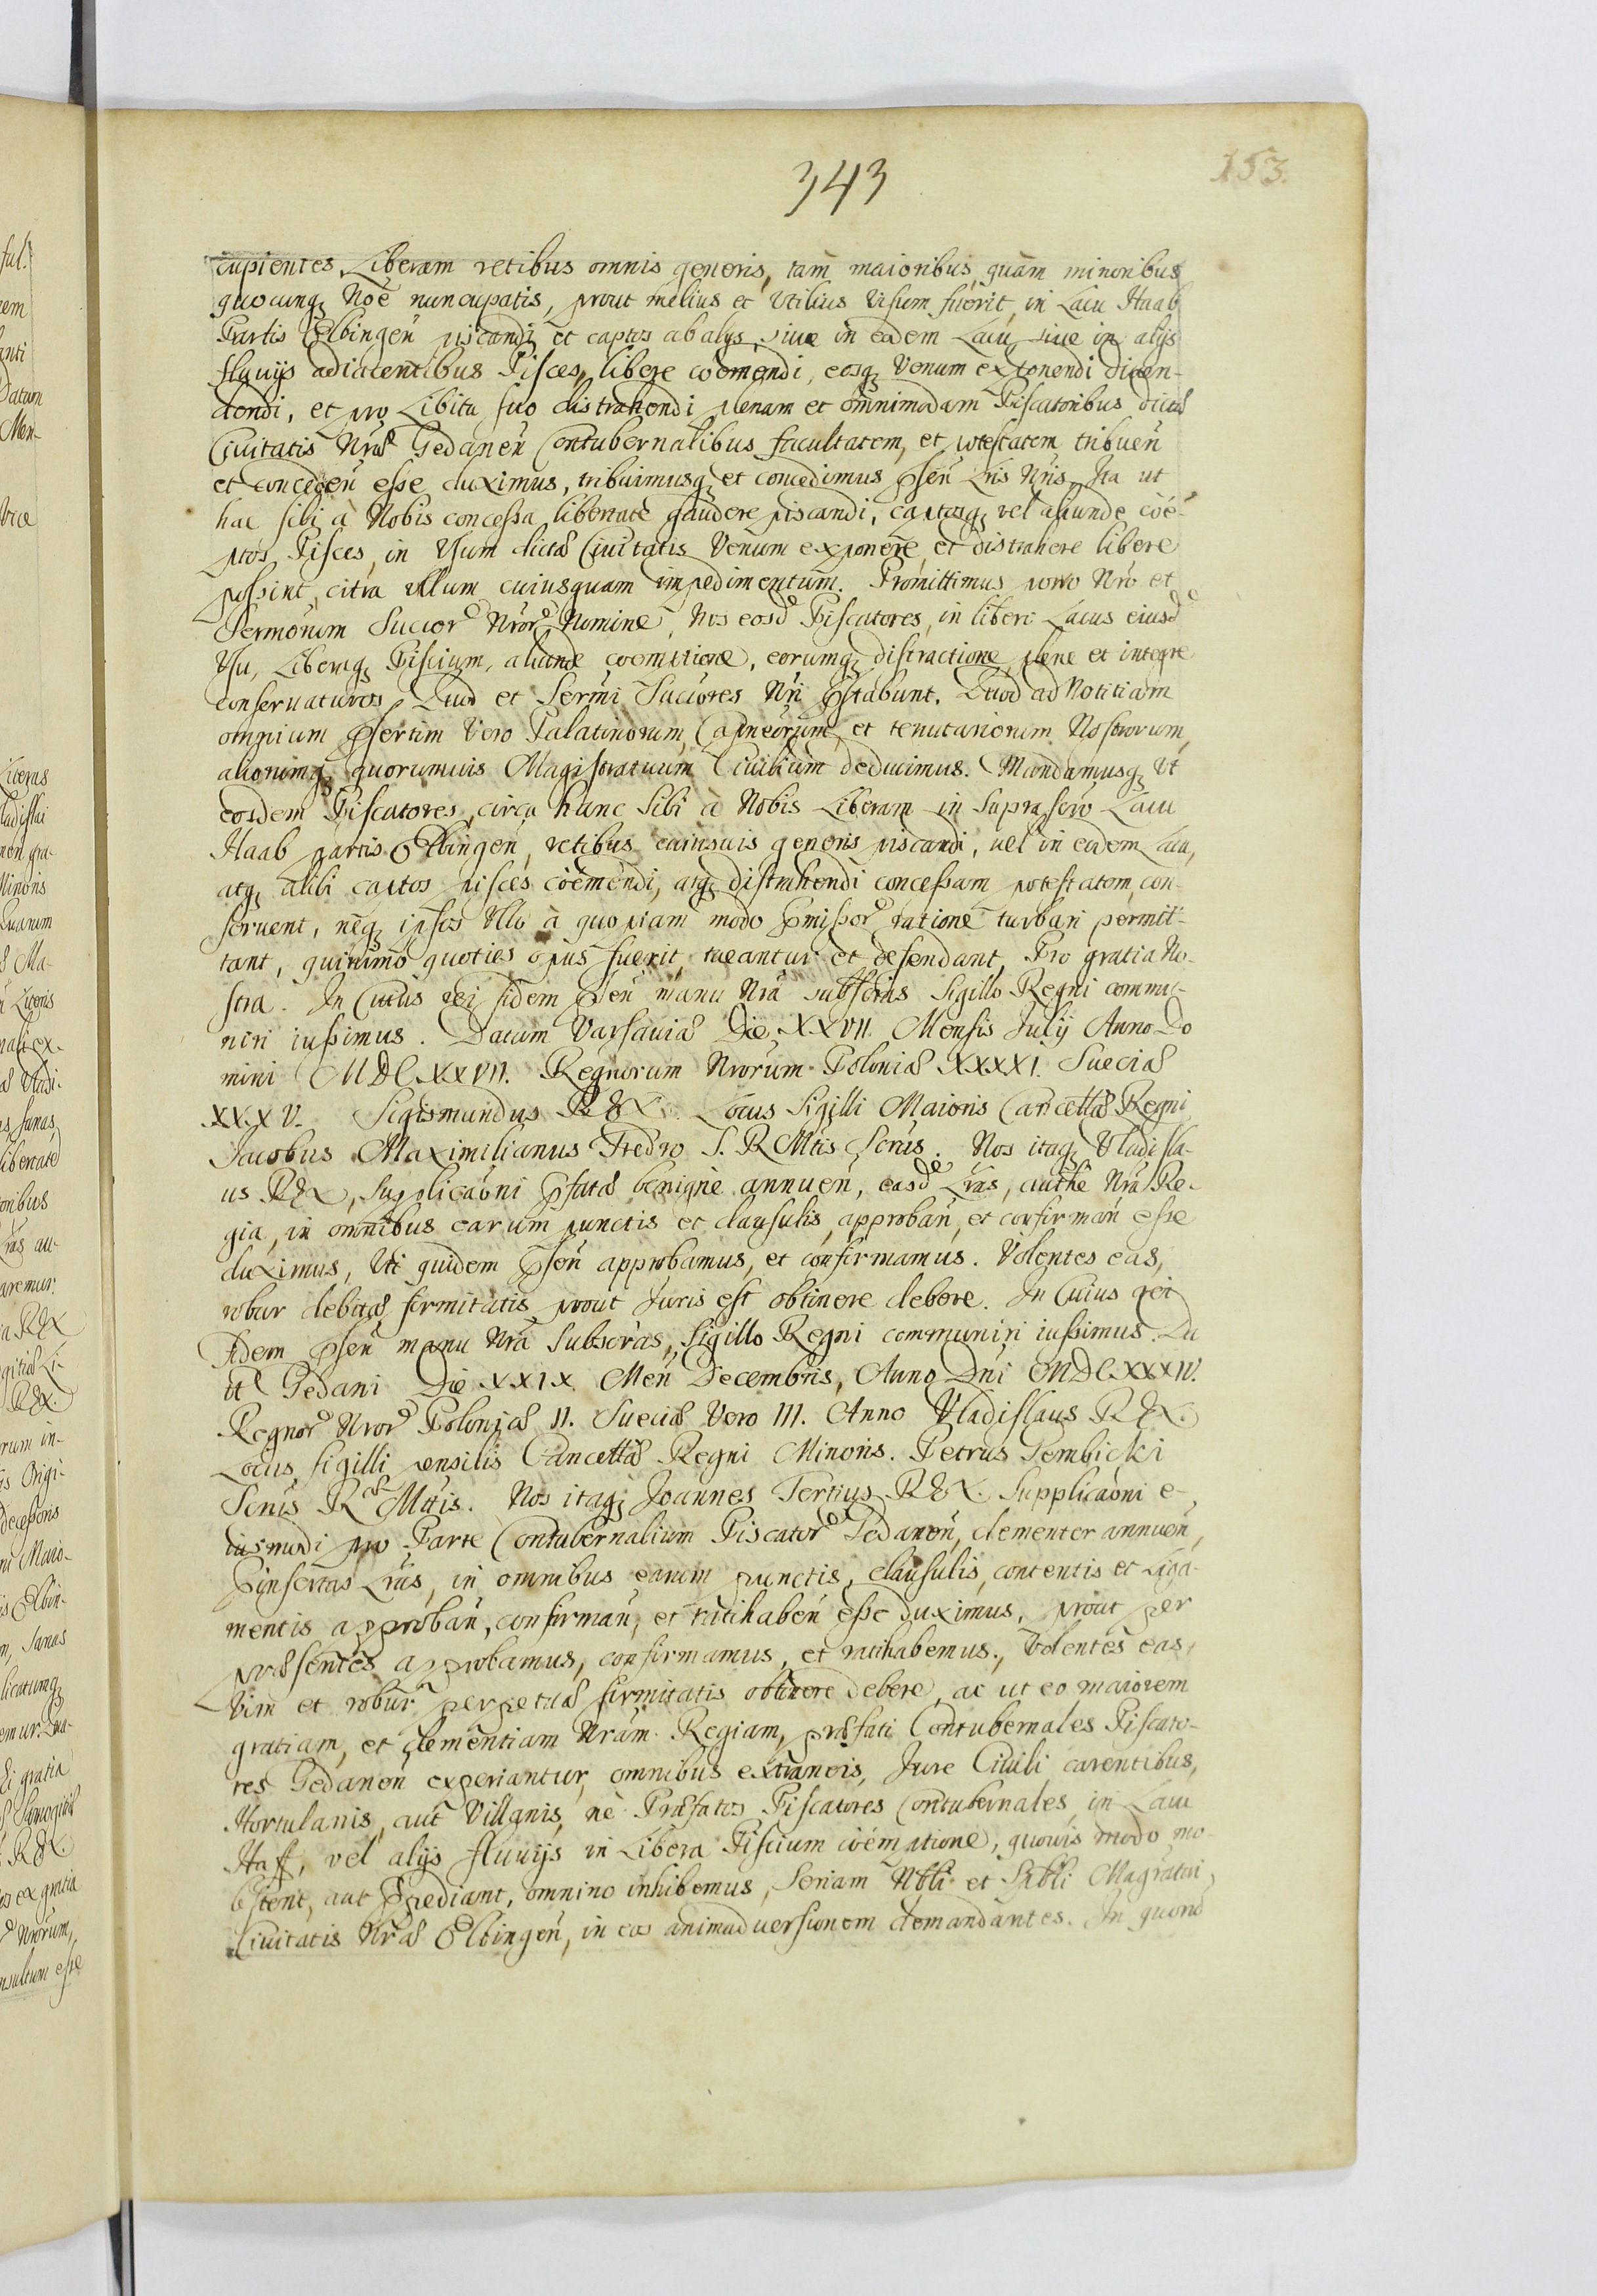 343
153.
cupientes, Liberam retibus omnis generis, tam maioribus, quàm minoribus
quocunq; Noe nuncupatis, prout melius et Vtilius Visum fuerit, in Lacu Haab
Partis Elbingen piscandi et captos ab alys, siue in eadem Lacu, siue in alijs
fluuijs adiacentibus Pisces, libere coemendi, eosq; Venum exponendi diuen-
dendi, et pro Libitu suo distrahendi plenam et omnimodam Piscatoribus dictæ
Ciuitatis Nræ Gedanen Contubernalibus facultatem, et potestatem tribuen
et conceden esse duximus, tribuimusq; et concedimus psen Lris Nris, Ita ut
hac sibi à Nobis concessa libertate gaudere piscandi, captosq; vel aliunde coe-
ptos Pisces, in Vsum dictæ Ciuitatis Venum exponere, et distrahere libere
possint, citra vllum cuiusquam impedimentum. Promittimus porro Nro et
Sermorum Succor Nror Nomine, Nos eosd Piscatores, in liberi Lacus eiusd
Vsu, Liberaq; Piscium, aliunde coemptione, eorumq; distractione plene et integre
conseruaturos Quod et Sermi Succores Nri pstabunt. Quod ad Notitiam
omnium psertim Vero Palatinorum, Capneorum, et tenutariorum Nostrorum,
aliorumq; quorumuis Magistratuum Ciuilium deducimus. Mandamusq; Vt
eosdem Piscatores, circa hanc Sibi à Nobis Liberam in Suprascro Lacu
Haab partis Elbingen, retibus cuiusuis generis piscandi, uel in eadem Lacu,
atq; alibi captos pisces coemendi, atq; distrahendi concessam potestatem con-
seruent, neq; ipsos Vllo à quopiam modo pmissor ratione turbari permit-
tant, quinimo quoties opus fuerit, tueantur et defendant, Pro gratia No-
stra. In Cuius rei fidem psen manu Nra subscras Sigillo Regni commu-
niri iussimus. Datum Varsauiæ Die XXVII. Mensis Julij Anno Do
mini MDCXXVII. Regnorum Nrorum Poloniæ XXXXI. Sueciæ
XXXV. Sigismundus REX. Locus Sigilli Maioris Cancellæ Regni
Jacobus Maximilianus Fredro S. R Mtis Scrius. Nos itaq; Vladisla-
us REX, Supplicaoni pfatæ benigne annuen, easd Lras, authe Nra Re-
gia, in omnibus earum punctis et clausulis, approban, et confirman esse
duximus, Vti quidem psen approbamus, et confirmamus. Volentes eas,
robur debitæ firmitatis prout Juris est obtinere debere. In Cuius rei
Fidem psen manu Nra Subscras, Sigillo Regni communiri iussimus. Da
tt Gedani Die XXIX. Men Decembris, Anno Dni MDCXXXIV.
Regnor Nror Poloniæ II. Sueciæ Vero III. Anno Vladislaus REX.
Locus Sigilli pensilis Cancellæ Regni Minoris. Petrus Gembicki
Scrius R Mttis. Nos itaq; Joannes Tertius REX. Supplicaoni e-
iusmodi pro Parte Contubernalium Piscator Gedanen, clementer annuen,
pinsertas Lras, in omnibus earum punctis, clausulis, contentis et Liga-
mentis approban, confirman, et ratihaben esse duximus, prout per
præsentes approbamus, confirmamus, et ratihabemus., Volentes eas,
Vim et robur perpetuæ firmitatis obtinere debere, ac ut eo maiorem
gratiam, et clementiam Nram Regiam, præfati Contubernales Piscato-
res Gedanen experiantur, omnibus extraneis, Jure Ciuili carentibus,
Hortulanis, aut Villanis, nè Præfatos Piscatores Contubernales, in Lacu
Haff, vel alijs fluuijs in Libera Piscium coemptione, quouis modo mo-
lestent, aut pediant, omnino inhibemus, Seriam Nbli et Spbli Magratui,
Ciuitatis Nræ Elbingen, in eos animaduersionem demandantes. In quorū